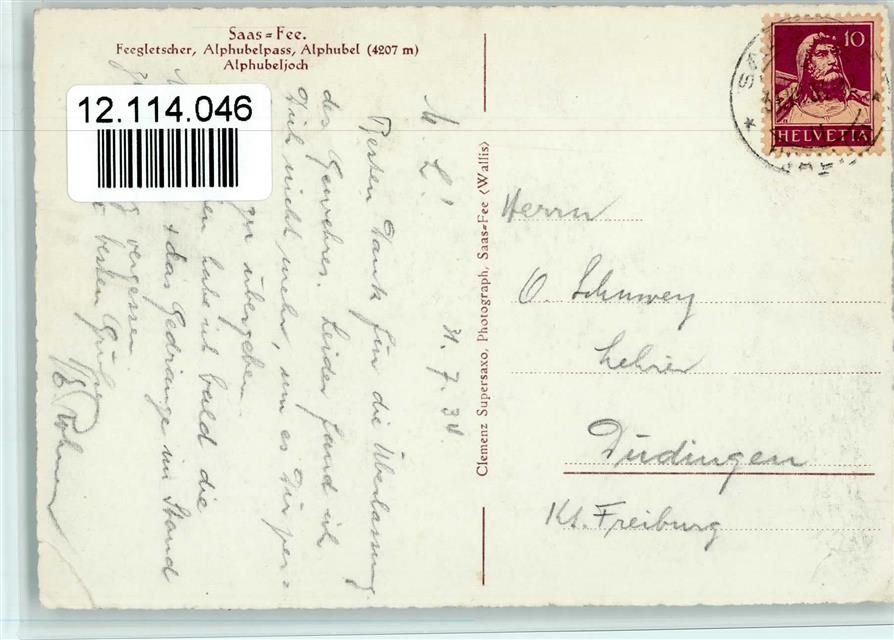 Saas=Fee.
Feegletscher, Alphubelpass, Alphubel (4207 m)
Alphubeljoch
12.114.046
10
HELVETIA
Clemenz Supersaxo, Photograph, Saas=Fee (Wallis)
M. L.!
31. 7. 34.
Besten Dank für die Überlassung
des Gewehres. Leider fand ich
Dich nicht mehr, um es Dir per=
übergeben.
habe ich bald die
+ das Gedränge im Stand
vergessen.
besten Grüssen
Herrn
O. Schuwey
Lehrer
Düdingen
Kt. Freiburg